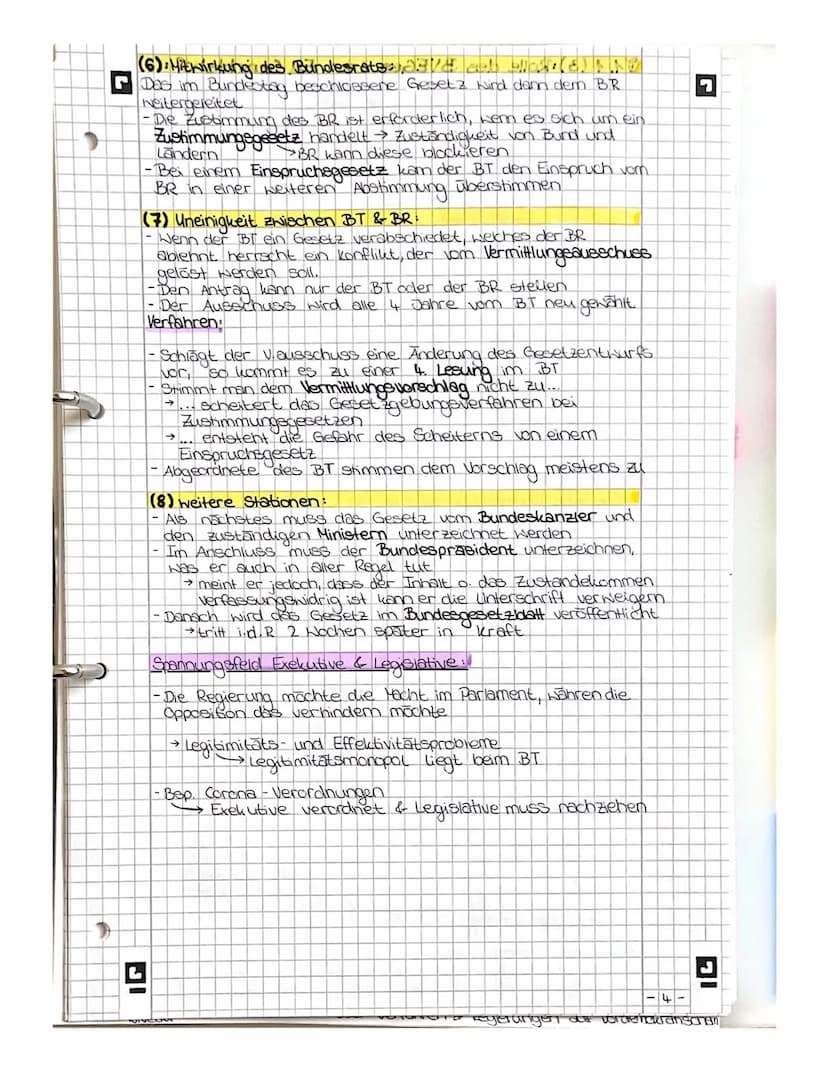 (6) Mitwirkung des Bundesrats:
Das im Bundestag beschlossene Gesetz wird dann dem BR
weitergeleitet
- Die Zustimmung des BR ist erforderlich, wenn es sich um ein
Zustimmungsgesetz handelt → Zuständigkeit von Bund und
Ländern →BR kann diese blockieren
- Bei einem Einspruchsgesetz kann der BT den Einspruch vom
BR in einer weiteren Abstimmung überstimmen
(7) Uneinigkeit zwischen BT & BR:
- Wenn der BT ein Gesetz verabschiedet, welches der BR
ablehnt herrscht ein Konflikt, der vom Vermittlungsausschuss
gelöst werden soll.
- Den Antrag kann nur der BT oder der BR stellen
- Der Ausschuss wird alle 4 Jahre vom BT neu gewählt
Verfahren:
- Schlägt der V.ausschuss eine Änderung des Gesetzentwurfs
vor, so kommt es zu einer 4. Lesung im BT
- Stimmt man dem Vermittlungsvorschlag nicht zu...
→ ... scheitert das Gesetzgebungsverfahren bei
Zustimmungsgesetzen
→ ... entsteht die Gefahr des Scheiterns von einem
Einspruchsgesetz
- Abgeordnete des BT stimmen dem Vorschlag meistens zu
(8) weitere Stationen:
- Als nächstes muss das Gesetz vom Bundeskanzler und
den zuständigen Ministern unterzeichnet werden
- Im Anschluss muss der Bundespräsident unterzeichnen,
was er auch in aller Regel tut
→ meint er jedoch, dass der Inhalt o. das Zustandekommen
verfassungswidrig ist kann er die Unterschrift verweigern
- Danach wird das Gesetz im Bundesgesetzblatt veröffentlicht
→ tritt i.d.R 2 Wochen später in Kraft
Spannungsfeld Exekutive & Legislative:
- Die Regierung möchte die Macht im Parlament, währen die
Opposition das verhindern möchte
→ Legitimitäts- und Effektivitätsprobleme
→ Legitimitätsmonopol liegt beim BT
- Bsp. Corona - Verordnungen
→ Exekutive verordnet & Legislative muss nachziehen
- 4 -